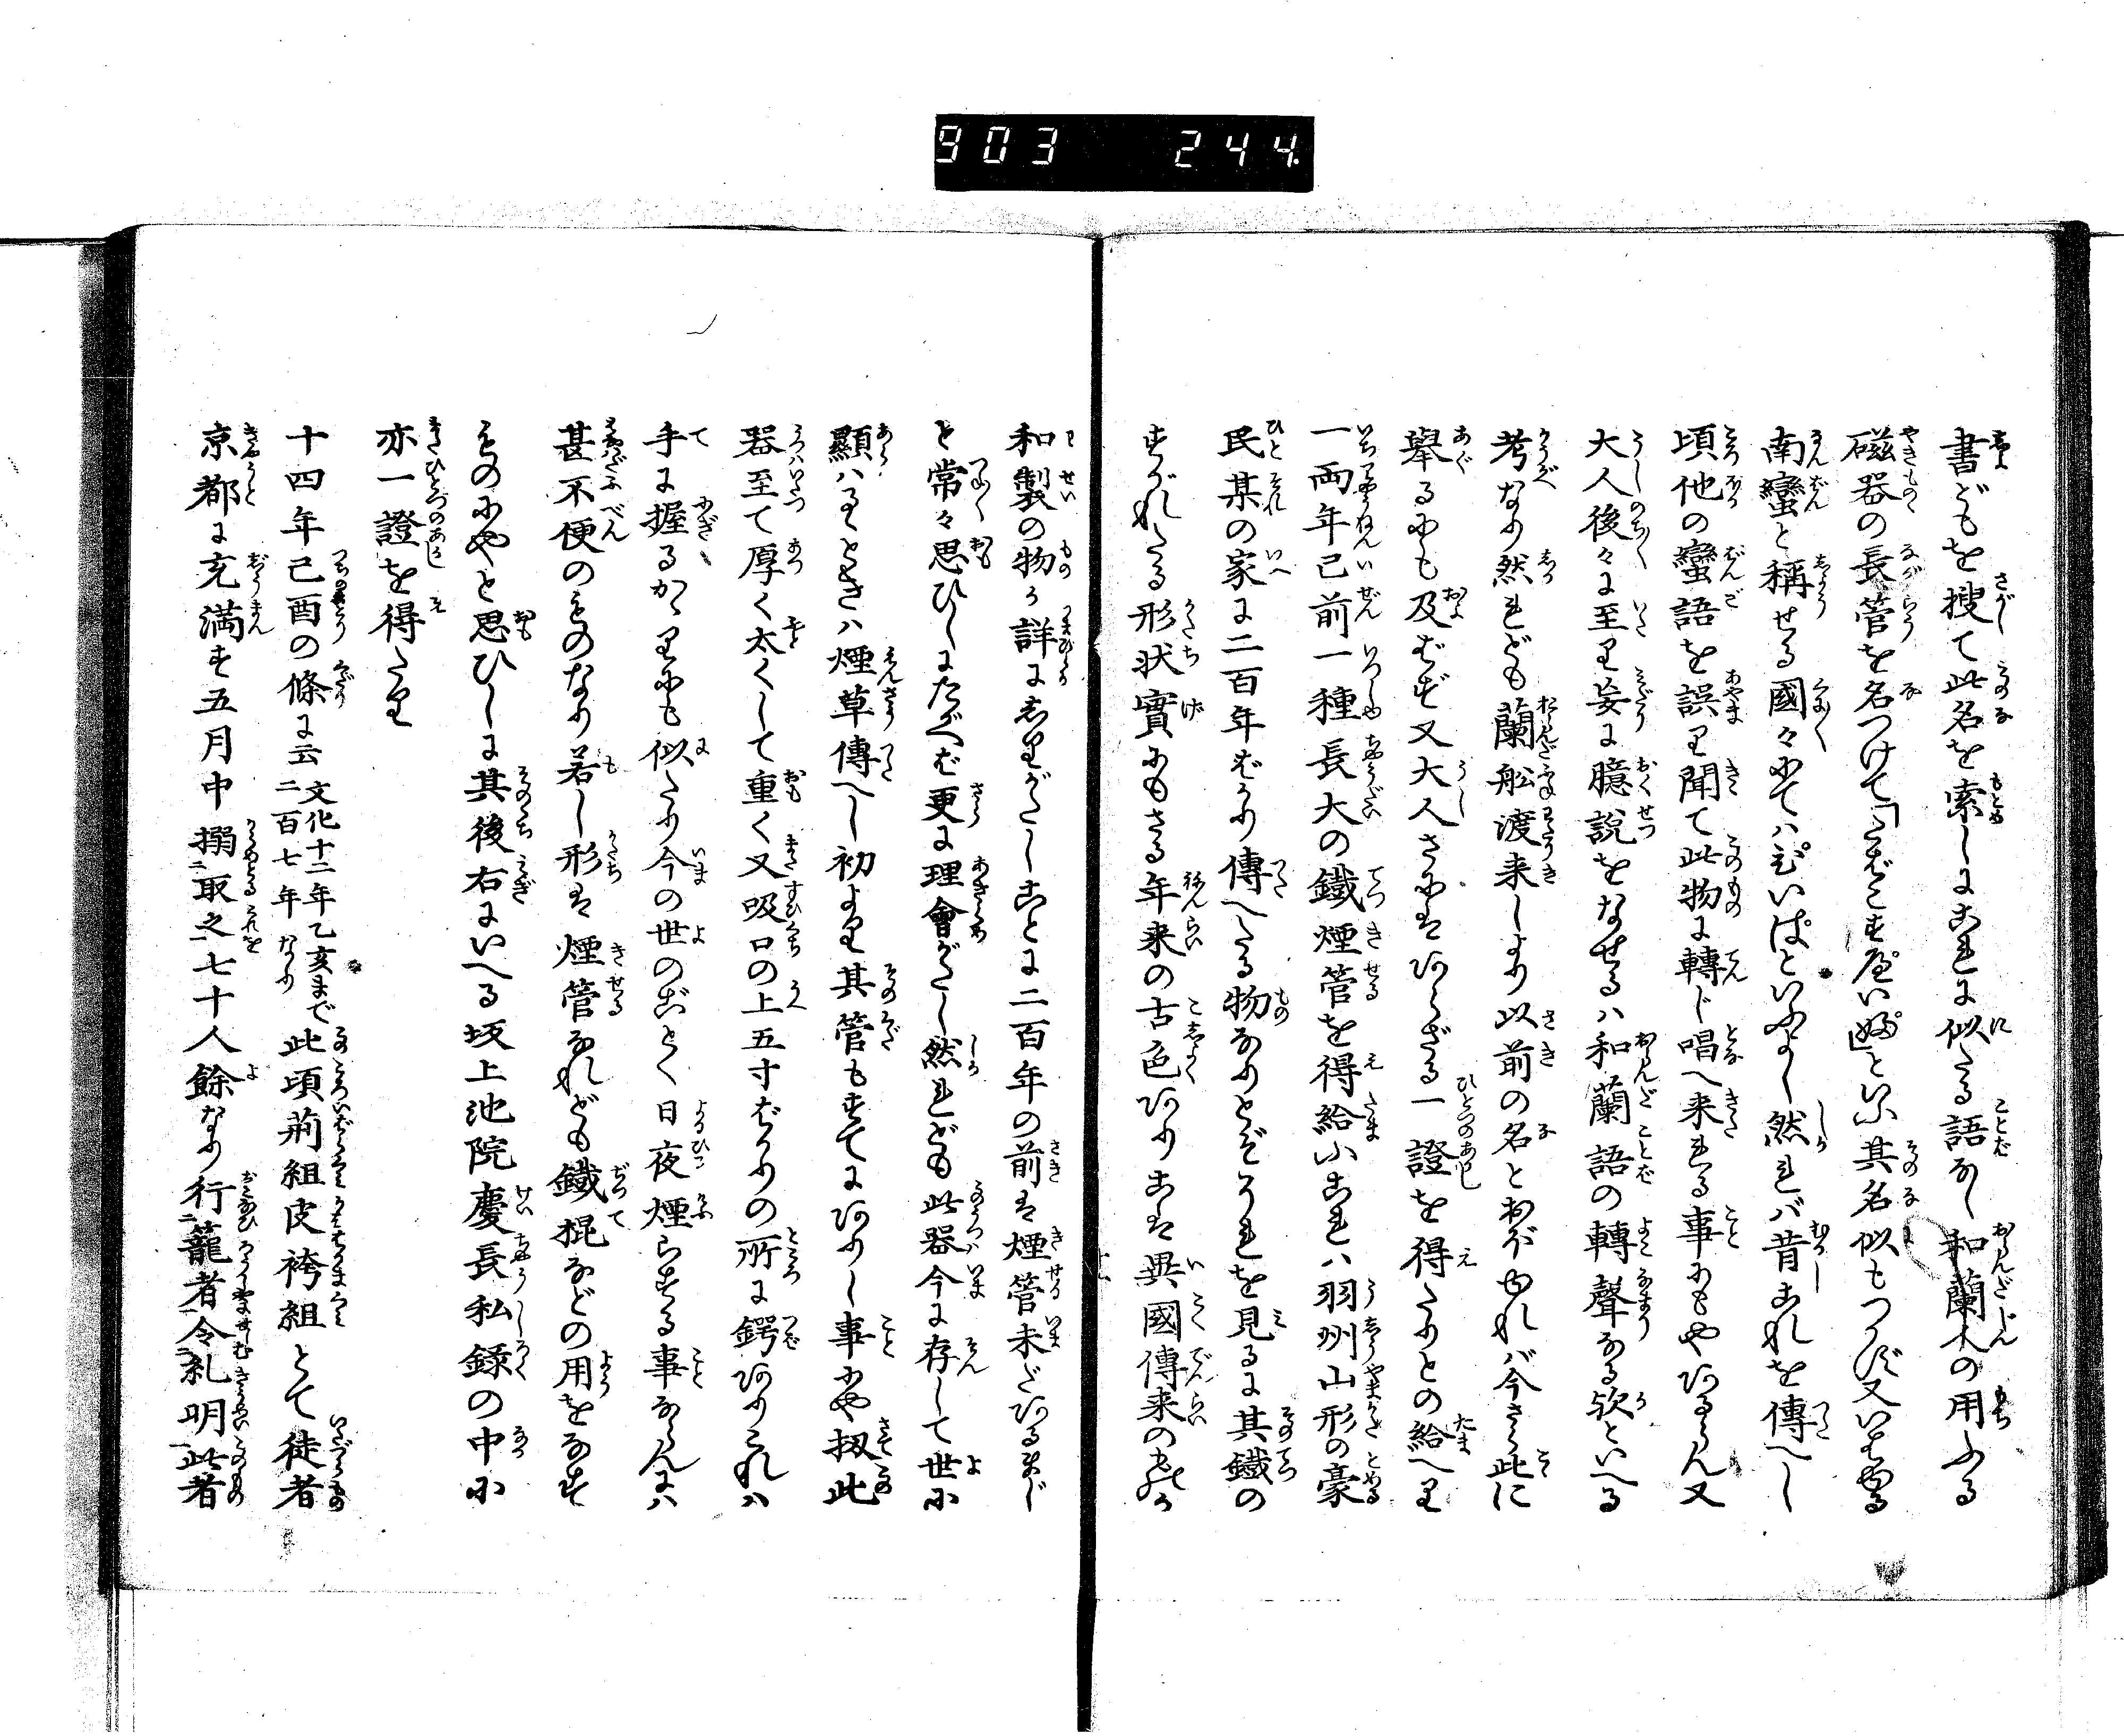 903 244.
書どもを捜て此名を索しにこれに似たる語なし和蘭人の用ふる
磁器の長管を名つけて「たばこすぽいぷ」といふ其名似もつかず又いはゆる
南蠻と称せる國々にてハぴいぱといふよし然れバ昔これを傳へし
頃他の蠻語を誤り聞て此物に轉じ唱へ来れる事にもやあるらん又
大人後々に至り妄に臆説をなせるハ和蘭語の轉聲なる欤といへる
考なり然れども蘭舩渡来しより以前の名とおぼゆれバ今さら此に
擧るにも及ばず又大人さにはあらざる一證を得たりとの給へり
一両年已前一種長大の鐵煙管を得給ふこれハ羽州山形の豪
民某の家に二百年ばかり傳へたる物なりとぞこれを見るに其鐵の
すがれたる形状實にもさる年来の古色ありこは異國傳来の物か
和製の物か詳にしりがたしことに二百年の前は煙管未だあるまじ
と常々思ひしにたがへば更に理會がたし然れども此器今に存して世に
顯ハるゝときハ煙草傳へし初より其管もすでにありし事にや扨此
器至て厚く太くして重く又吸口の上五寸ばかりの所に鍔ありこれハ
手に握るかゝりにも似たり今の世のごとく日夜煙らする事ならんにハ
甚不便のものなり若し形は煙管なれども鐵棍などの用をなす
ものにやと思ひしに其後右にいへる坂上池院慶長私録の中に
亦一證を得たり
十四年己酉の條に云文化十二年乙亥まで二百七年なり此頃荊組皮袴組とて徒者
京都に充満す五月中搦取之七十人餘なり行籠者令糺明此者